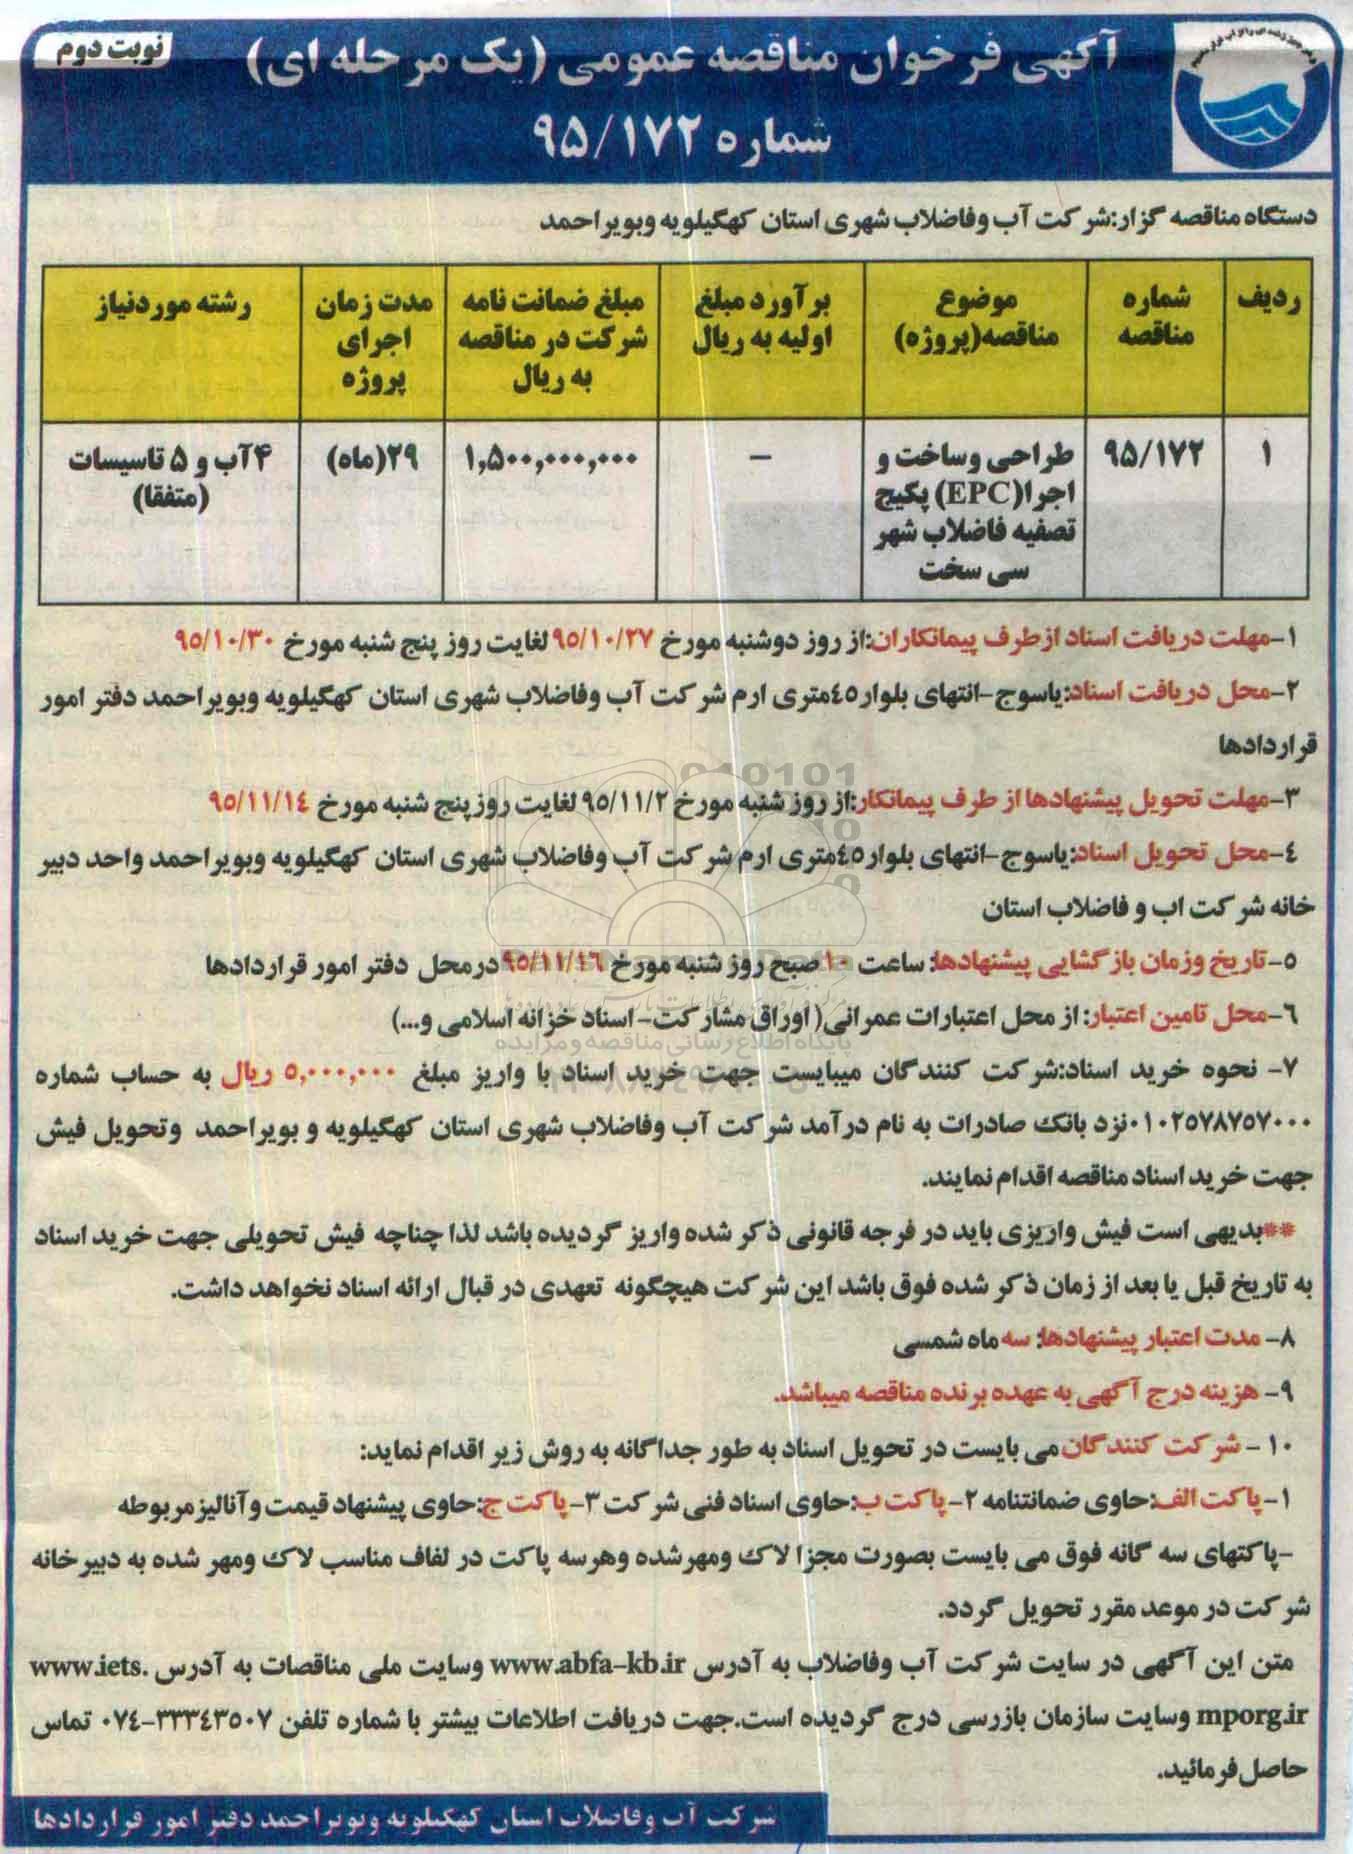 نوبت دوم
آگهی فرخوان مناقصه عمومی (یک مرحله ای)
شماره ۹۵/۱۷۲
دستگاه مناقصه گزار:شرکت آب وفاضلاب شهری استان کهگیلویه وبویراحمد
ردیف | شماره مناقصه | موضوع مناقصه(پروژه) | برآورد مبلغ اولیه به ریال | مبلغ ضمانت نامه شرکت در مناقصه به ریال | مدت زمان اجرای پروژه | رشته موردنیاز
۱ | ۹۵/۱۷۲ | طراحی وساخت و اجرا(EPC) پکیج تصفیه فاضلاب شهر سی سخت | – | ۱,۵۰۰,۰۰۰,۰۰۰ | ۲۹(ماه) | ۴آب و ۵ تاسیسات (متفقا)
۱-مهلت دریافت اسناد ازطرف پیمانکاران:از روز دوشنبه مورخ ۹۵/۱۰/۲۷ لغایت روز پنج شنبه مورخ ۹۵/۱۰/۳۰
۲-محل دریافت اسناد:یاسوج-انتهای بلوار۴۵متری ارم شرکت آب وفاضلاب شهری استان کهگیلویه وبویراحمد دفتر امور
قراردادها
۳-مهلت تحویل پیشنهادها از طرف پیمانکار:از روز شنبه مورخ ۹۵/۱۱/۲ لغایت روزپنج شنبه مورخ ۹۵/۱۱/۱۴
۴-محل تحویل اسناد:یاسوج-انتهای بلوار۴۵متری ارم شرکت آب وفاضلاب شهری استان کهگیلویه وبویراحمد واحد دبیر
خانه شرکت اب و فاضلاب استان
۵-تاریخ وزمان بازگشایی پیشنهادها: ساعت ۱۰ صبح روز شنبه مورخ ۹۵/۱۱/۱۶درمحل دفتر امور قراردادها
۶-محل تامین اعتبار: از محل اعتبارات عمرانی( اوراق مشارکت- اسناد خزانه اسلامی و...)
پایگاه اطلاع رسانی مناقصه و مزایده
۷- نحوه خرید اسناد:شرکت کنندگان میبایست جهت خرید اسناد با واریز مبلغ ۵,۰۰۰,۰۰۰ ریال به حساب شماره
۰۱۰۲۵۷۸۷۵۷۰۰۰نزد بانک صادرات به نام درآمد شرکت آب وفاضلاب شهری استان کهگیلویه و بویراحمد وتحویل فیش
جهت خرید اسناد مناقصه اقدام نمایند.
**بدیهی است فیش واریزی باید در فرجه قانونی ذکر شده واریز گردیده باشد لذا چناچه فیش تحویلی جهت خرید اسناد
به تاریخ قبل یا بعد از زمان ذکر شده فوق باشد این شرکت هیچگونه تعهدی در قبال ارائه اسناد نخواهد داشت.
۸- مدت اعتبار پیشنهادها: سه ماه شمسی
۹- هزینه درج آگهی به عهده برنده مناقصه میباشد.
۱۰- شرکت کنندگان می بایست در تحویل اسناد به طور جداگانه به روش زیر اقدام نماید:
۱-پاکت الف:حاوی ضمانتنامه ۲-پاکت ب:حاوی اسناد فنی شرکت ۳-پاکت ج:حاوی پیشنهاد قیمت وآنالیزمربوطه
-پاکتهای سه گانه فوق می بایست بصورت مجزا لاک ومهرشده وهرسه پاکت در لفاف مناسب لاک ومهر شده به دبیرخانه
شرکت در موعد مقرر تحویل گردد.
متن این آگهی در سایت شرکت آب وفاضلاب به آدرس www.abfa-kb.ir وسایت ملی مناقصات به آدرس www.iets.
mporg.ir وسایت سازمان بازرسی درج گردیده است.جهت دریافت اطلاعات بیشتر با شماره تلفن ۳۳۳۴۳۵۰۷-۰۷۴ تماس
حاصل فرمائید.
شرکت آب وفاضلاب استان کهگیلویه وبویراحمد دفتر امور قراردادها